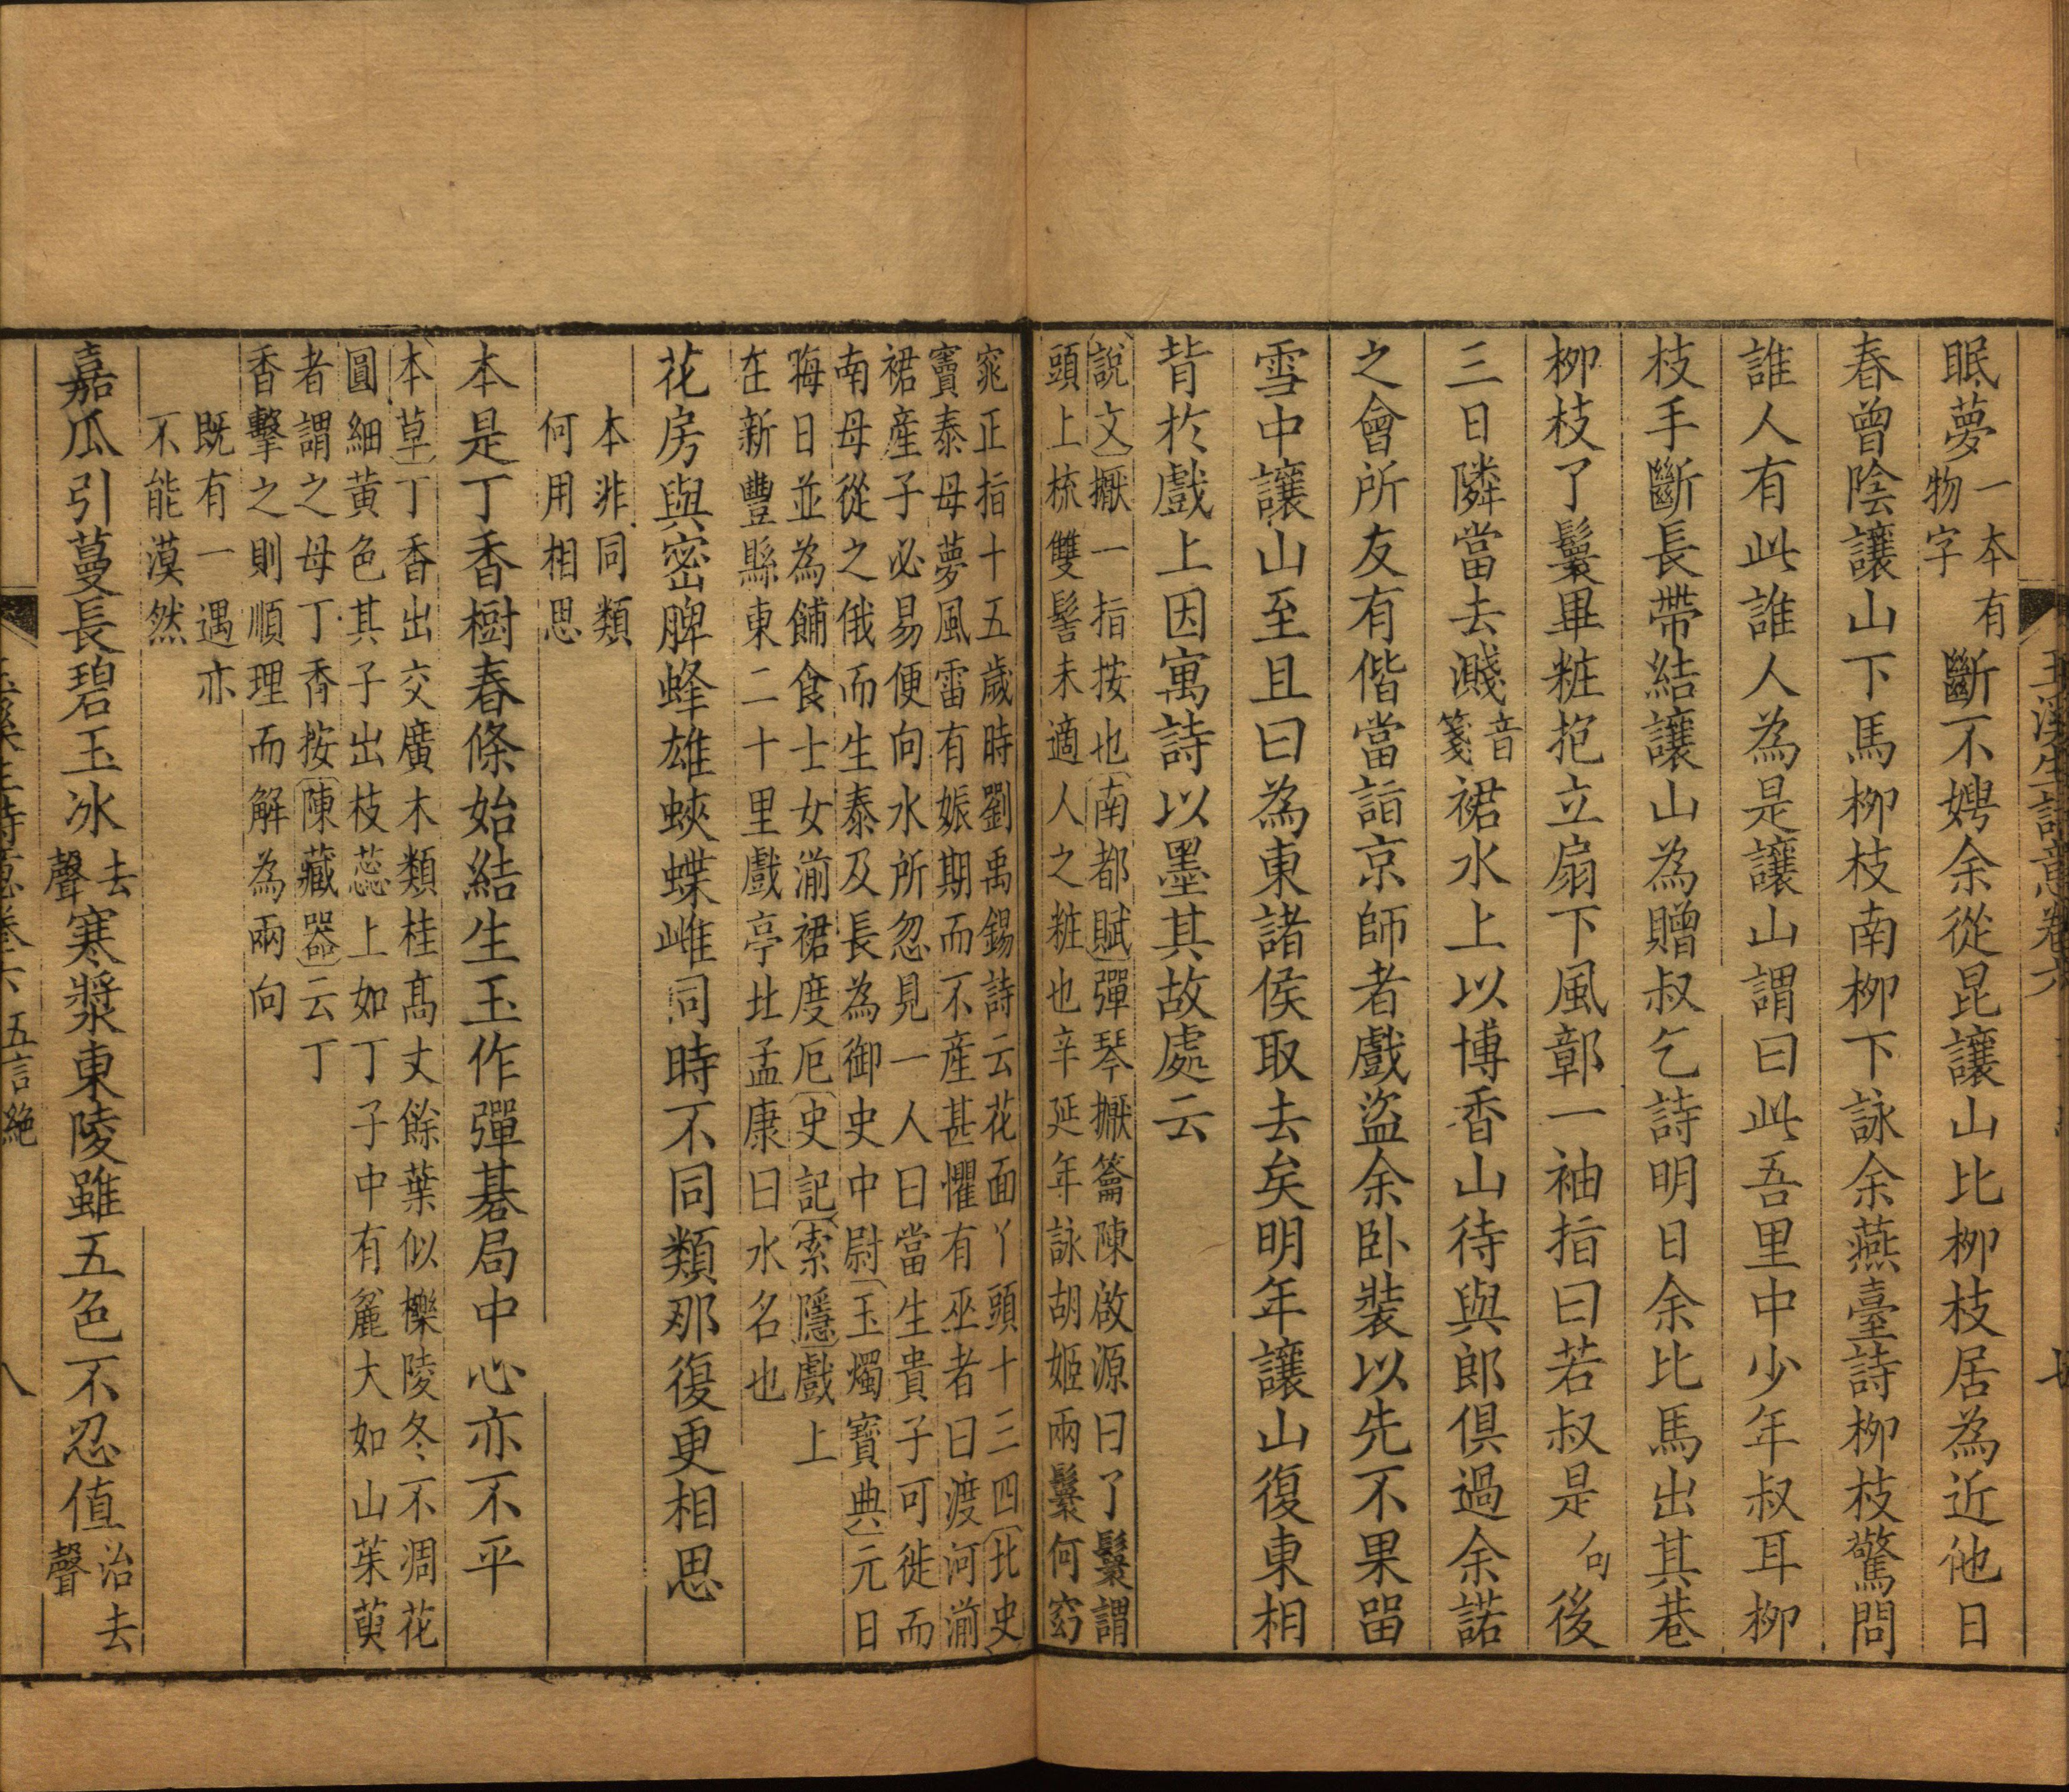 眠夢一本有物字斷不娉余從昆讓山比柳枝居為近他日
春曾陰讓山下馬柳枝南柳下詠余燕臺詩柳枝驚問
誰人有此誰人為是讓山謂曰此吾里中少年叔耳柳
枝手斷長帶結讓山為贈叔乞詩明日余比馬出其巷
柳枝丫鬟畢粧抱立扇下風鄣一袖指曰若叔是句後
三日隣當去濺音箋裙水上以博香山待與郎俱過余諾
之會所友有偕當詣京師者戲盜余卧裝以先不果畱
雪中讓山至且曰為東諸侯取去矣明年讓山復東相
背於戲上因寓詩以墨其故處云
說文擫一指按也南都賦彈琴擫籥陳啟源曰丫鬟謂
頭上梳雙髻未適人之粧也辛延年詠胡姬兩鬟何窈
窕正指十五歲時劉禹錫詩云花面丫頭十三四北史
竇泰母夢風雷有娠期而不産甚懼有巫者曰渡河湔
裙産子必易便向水所忽見一人曰當生貴子可徙而
南母從之俄而生泰及長為御史中尉玉燭寶典元日
晦日並為餔食士女湔裙度厄史記索隱戲上
在新豐縣東二十里戲亭北孟康曰水名也
花房與密脾蜂雄蛺蝶雌同時不同類那復更相思
本非同類
何用相思
本是丁香樹春條始結生玉作彈碁局中心亦不平
本草丁香出交廣木類桂髙丈餘葉似櫟陵冬不凋花
圓細黄色其子出枝蕊上如丁子中有麄大如山茱萸
者謂之母丁香按陳藏器云丁
香擊之則順理而解為兩向
既有一遇亦
不能漠然
嘉瓜引蔓長碧玉冰去聲寒漿東陵雖五色不忍值治去聲
五言絶
八